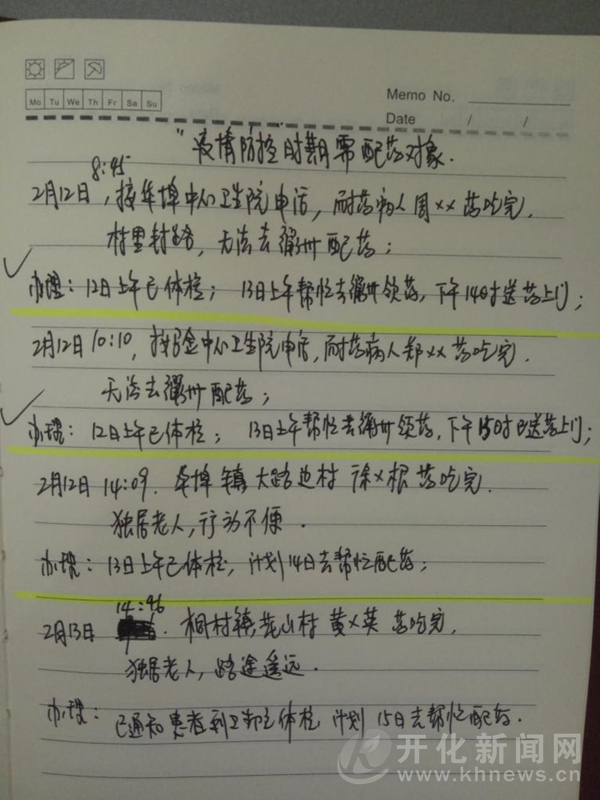 Mo Tu We Th Fr Sa Su
Memo No.
Date / /
"疫情防控时期需配药对象.
8:45
2月12日,接华埠中心卫生院电话,耐药病人周××药吃完.
村里封路,无法去衢州配药;
办理:12日上午已体检;13日上午帮忙去衢州领药,下午14时送药上门;
2月12日10:10,接 中心卫生院电话,耐药病人郑××药吃完.
无法去衢州配药;
办理:12日上午已体检;13日上午帮忙去衢州领药,下午15时已送药上门;
2月12日14:09.华埠镇大路边村徐×根药吃完.
独居老人,行动不便.
办理:13日上午已体检,计划14日去帮忙配药;
14:46
2月13日 .桐村镇 山村黄×英药吃完,
独居老人,路途遥远.
办理:已通知患者到卫 体检,计划15日去帮忙配药.
开化新闻网
www.khnews.cn